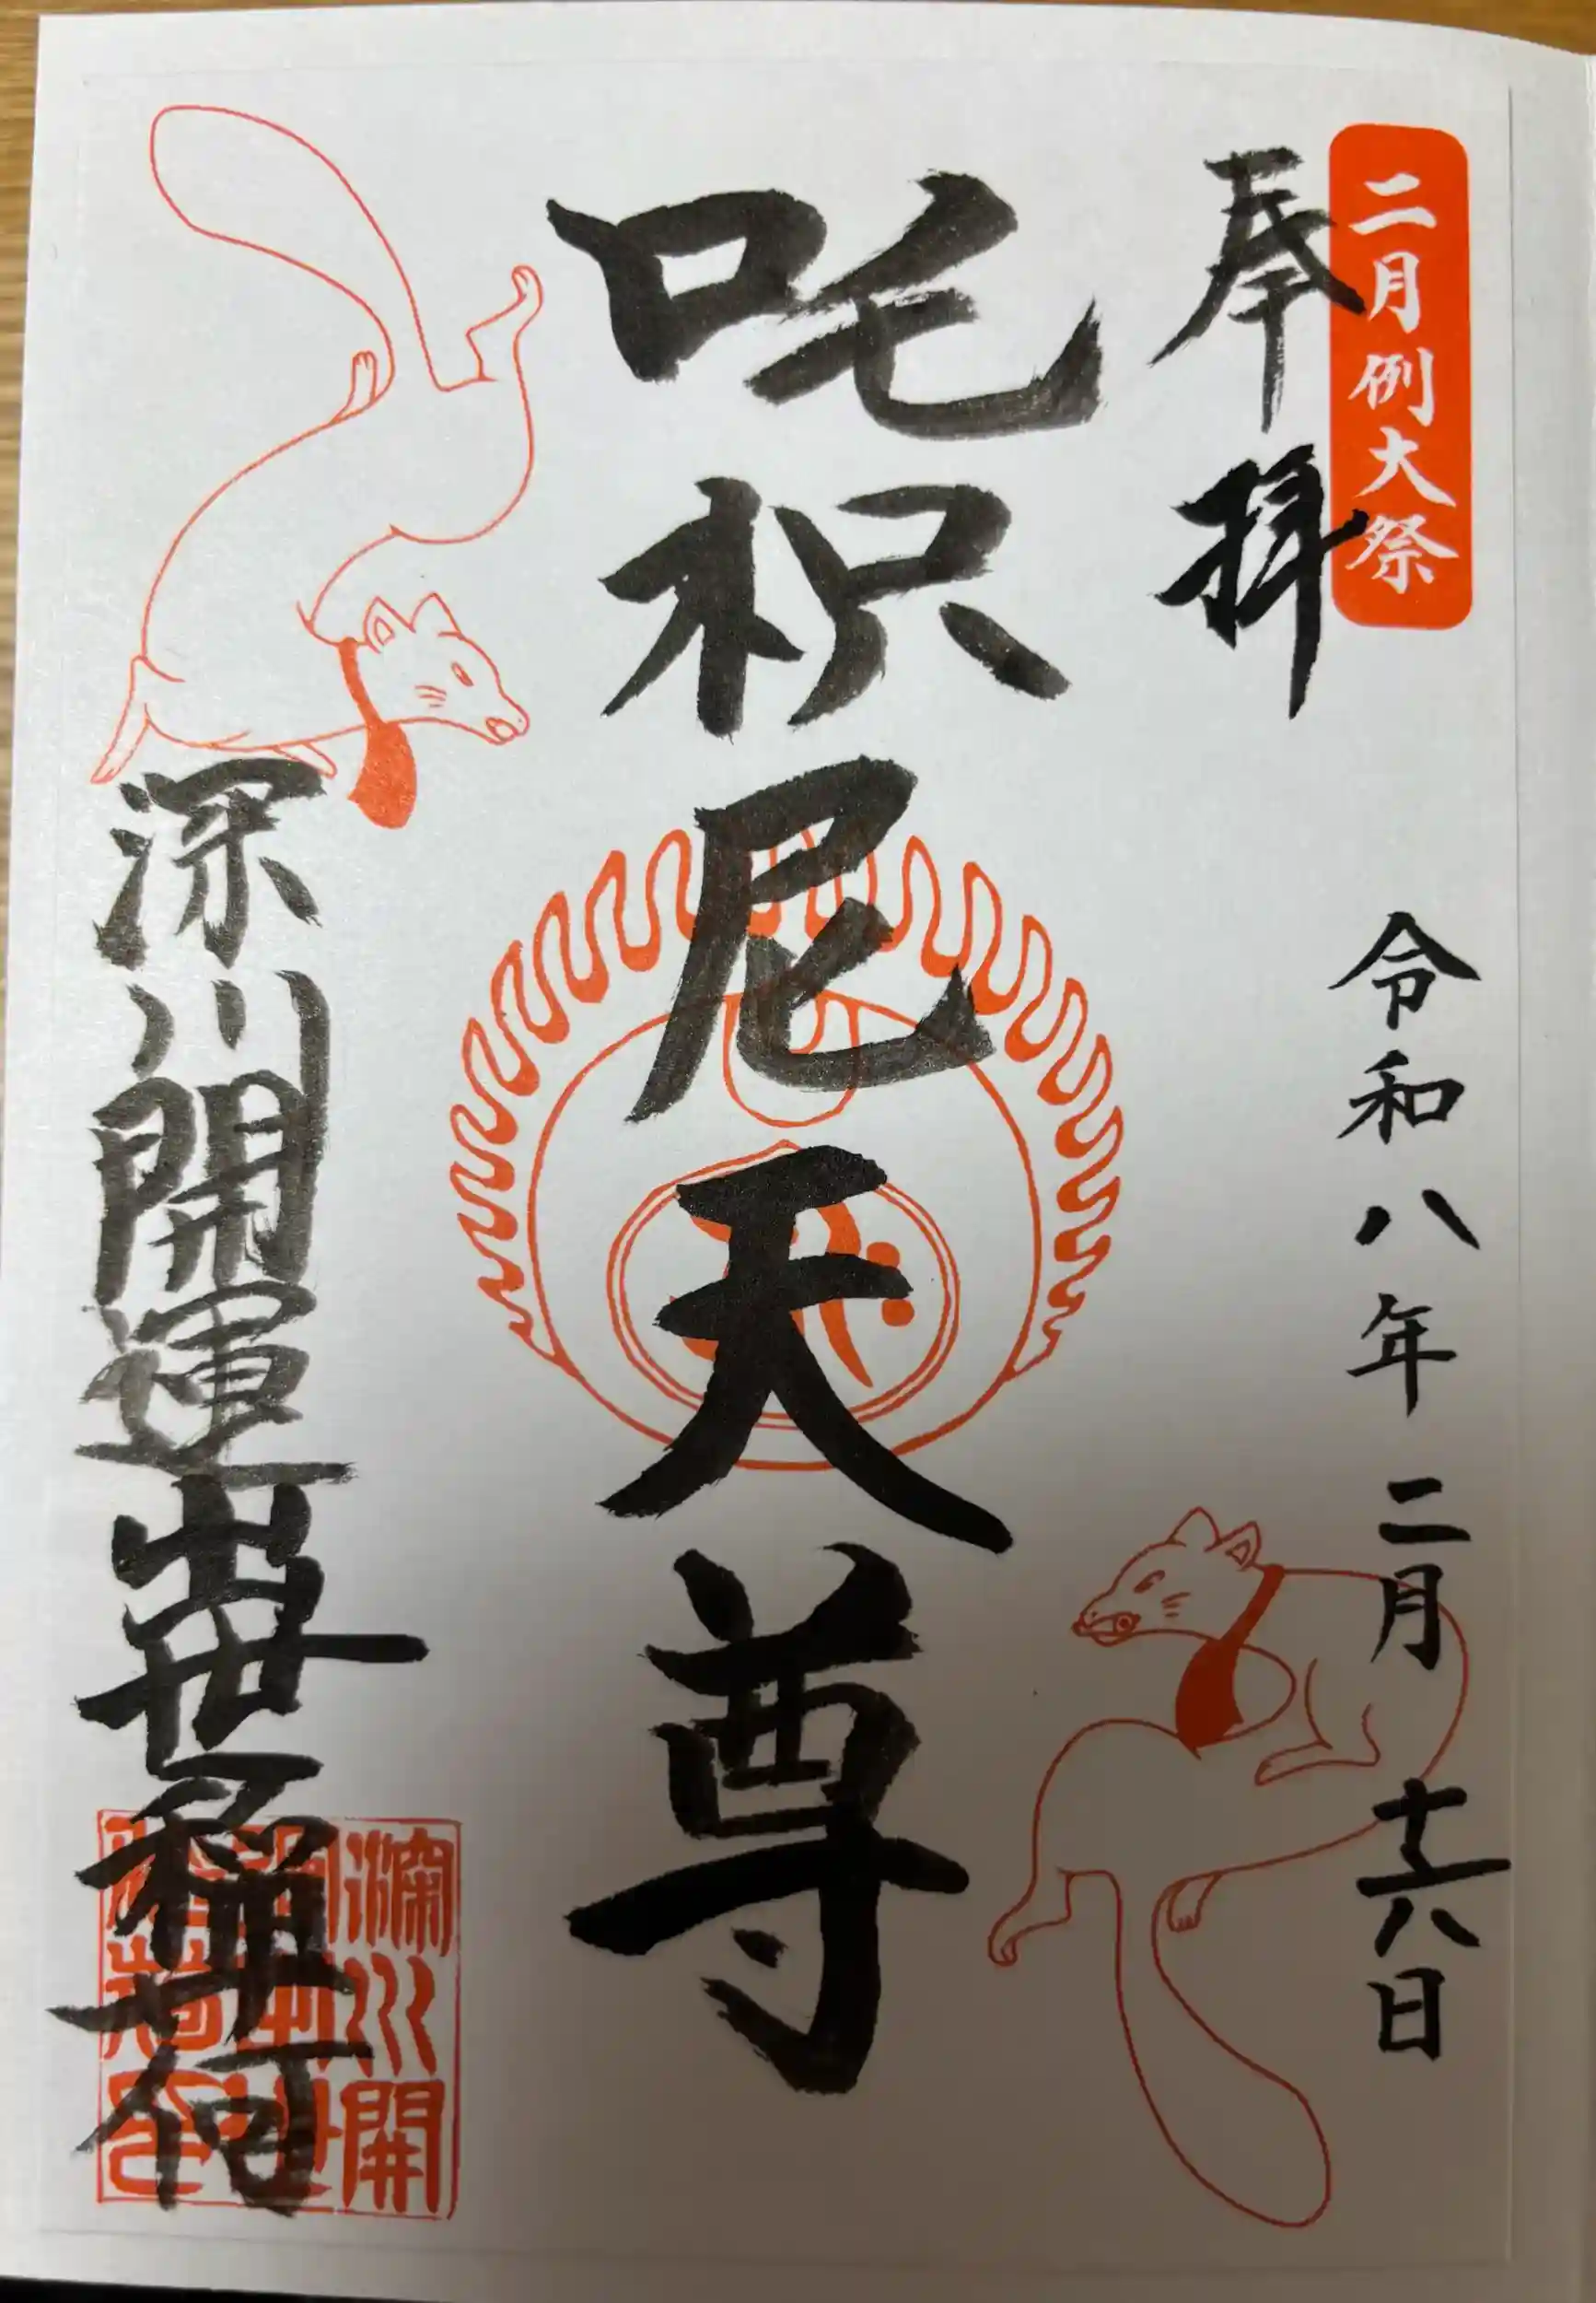 二月例大祭
奉拝
令和八年二月十六日
吒枳尼天尊
深川開運出世稲荷
深川開